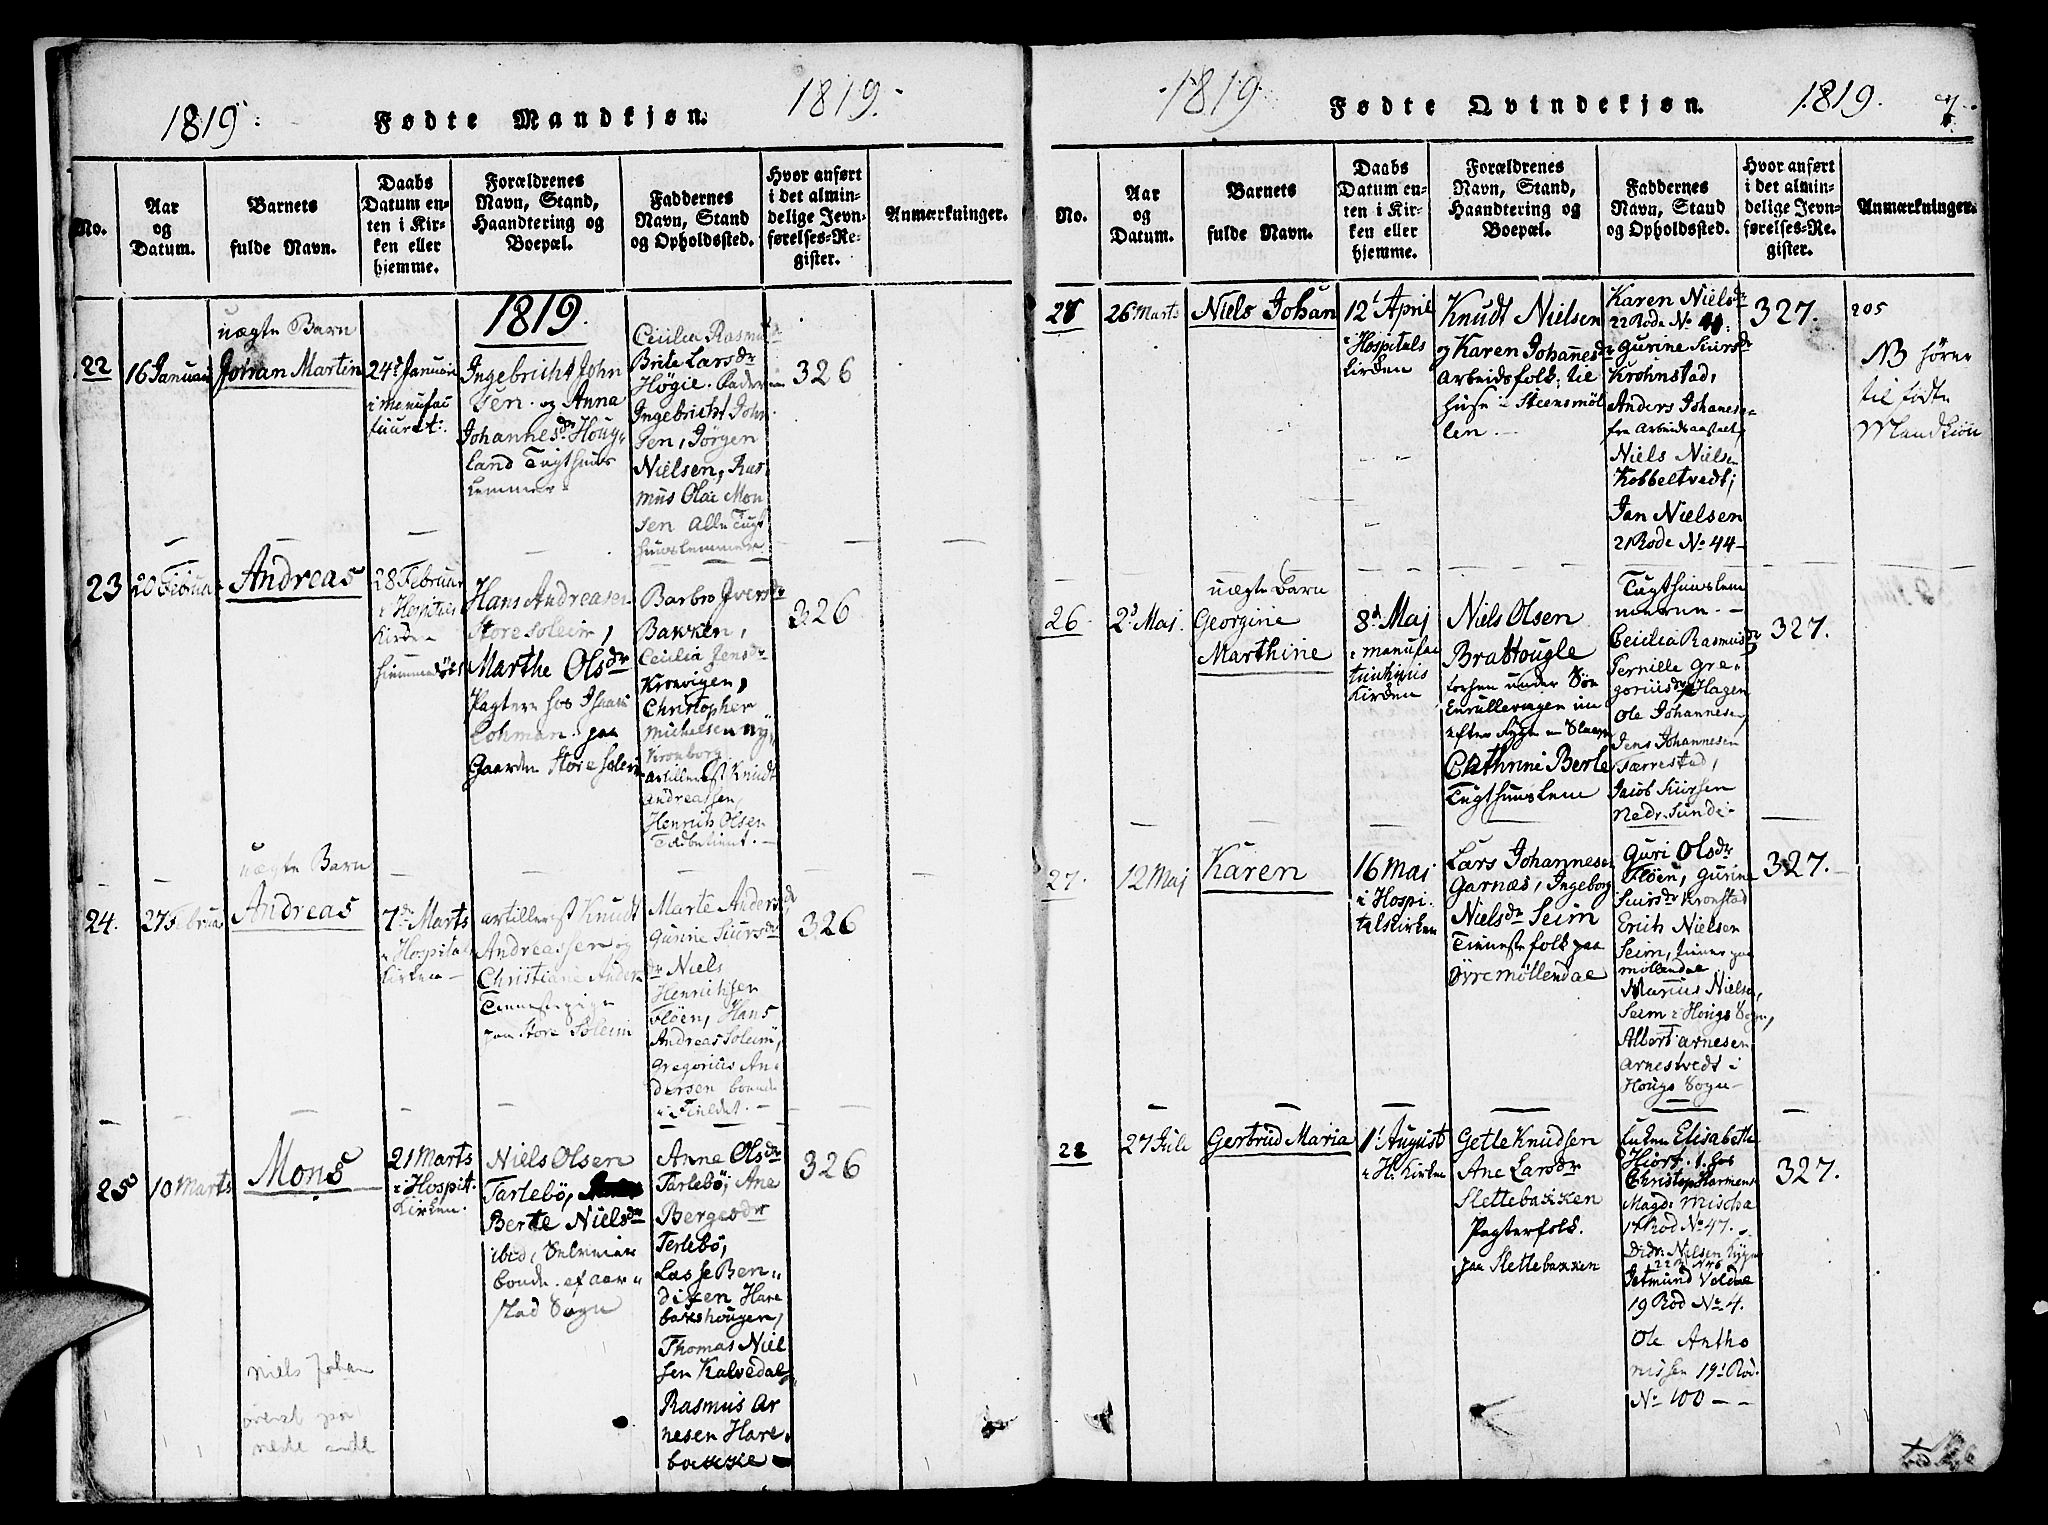 1819.
Fødte Mandkjøn.
1819.
No.
Aar
og
Datum.
Barnets
fulde Navn.
Daabs
Datum en-
ten i Kir-
ken eller
hjemme.
Forældrenes
Navn, Stand,
Haandtering og
Boepæl.
Faddernes
Navn, Stand
og Opholdssted.
Hvor anført
i det almin-
delige Jevn-
førelses-Re-
gister.
Anmærkninger.
1819.
22
16 Januar
uægte Barn
Johan Martin
24d Januari
i manufac
tuuret.
Ingebricht John
sen. og Anna
Johannesdr Houg-
land Tugthuus
Lemmer
Cecilia Rasmusdr
Brite Larsdr
Høgie.
Ingebricht John
sen, Jørgen
Nielsen, Ras
mus Olai Mon
sen alle Tugt
huuslemmer
326
23
20 Februar
Andreas
28 Februar
i Hospitals
Kirken
Hans Andreasen
Store Soleim,
Marthe Olsdr
Pagtere hos Isaac
Lohman. paa
Gaarden Store Soleim
Barbro Iversdr
Bakken,
Cecilia Jensdr
Kronvigen,
Christopher
Michelsen ny
Kronborg
artillerist Knudt
Andreassen,
Henrich Olsen
326
24.
27 Februar
uægte Barn
Andreas
7d Marts
i Hospitals
Kirken
artillerist Knudt
Andreassen og
Christiane Anders
dr
Tienestepige
paa Store Soleim
Marte Andersdr
Gurine Siursdr
Niels
Henrichsen
Fløen, Hans
Andreas Soleim,
Gregorius An
dersen boende
326
25
10 Marts
Mons
21 Marts
i Hospit.
Kirken.
Niels Olsen
Tarlebø,
Berte Nielsdr
ibid, Selveier
bonde. af aar
stad Sogn
Anne Olsdr
Tarlebø, Ane
Bergesdr
Terlebø,
Lasse Ben
dixen Hare
bakshougen,
Thomas Niel
sen Kalvedal,
Rasmus Ar
nesen Hare
bakke
326
Niels Johan
øverst paa
neste side
1819
Fødte Qvindekjøn.
1819.
7
No.
Aar
og
Datum.
Barnets
fulde Navn.
Daabs
Datum en-
ten i Kir-
ken eller
hjemme.
Forældrenes
Navn, Stand,
Haandtering og
Boepæl.
Faddernes
Navn, Stand
og Opholdssted.
Hvor anført
i det almin-
delige Jevn-
førelses-Re-
gister.
Anmærkninger.
26 Marts
Niels Johan
12' April
i Hospitals
Kirken
Knudt Nielsen
og Karen Johannesdr
Arbeidsfolk; til
huse i Steensmøl
len.
Karen Nielsdr
22 Rode No
Gurine Siursdr
Krohnstad,
Anders Johanese
fra Arbeidsanstalt,
Niels Nielsen
Kobbeltvedt,
Jan Nielsen
21 Rode No 44
327.
205
NB hører
til Fødte
Mandkiøn
26
2d Maj.
uægte Barn
Georgine
Marthine
8d Maj
i manufac
tuurhuus
Kirken
Niels Olsen
Brattougle
Cathrine Berle
Tugthuuslem
Tugthuuslem
merne.
Cecilea Rasmusdr
Pernille Gre-
goriusdr Hagen
Ole Johannesen,
Jens Johannesen
Tærrestad,
Jacob Siursen
Nedr. Sunde
327.
27.
12 Maj
Karen
16 Maj
i Hospi.
talskirken
Lars Johannesen
Garnæs, Ingeborg
Nielsdr Seim
Tienestefolk paa
Øvre Møllendal
Guri Olsdr
Fløen, Gurine
Siursdr Kronstad
Erich Nielsen
Seim, tiener paa
møllendal
Marius Nielsen,
Seim i Hougs Sogn,
Albert Arnesen
Arnestvedt i
Hougs Sogn
327.
28
27 Juli
Gertrud Maria
1' August
i H. Kirken
Getle Knudsen
Ane Larsdr
Slettebakken
Pagterfolk.
paa Slettebakken
Enken Elisabeth
Hjort. t. hos
Christop. Harmens
Magd: Mischa
17 Rod No 47.
Didr: Nielsen
22 R No 6
Jetmund Voldal
19 Rod No 4.
Ole Antho
nissen 19' Rod.
No 100
327.